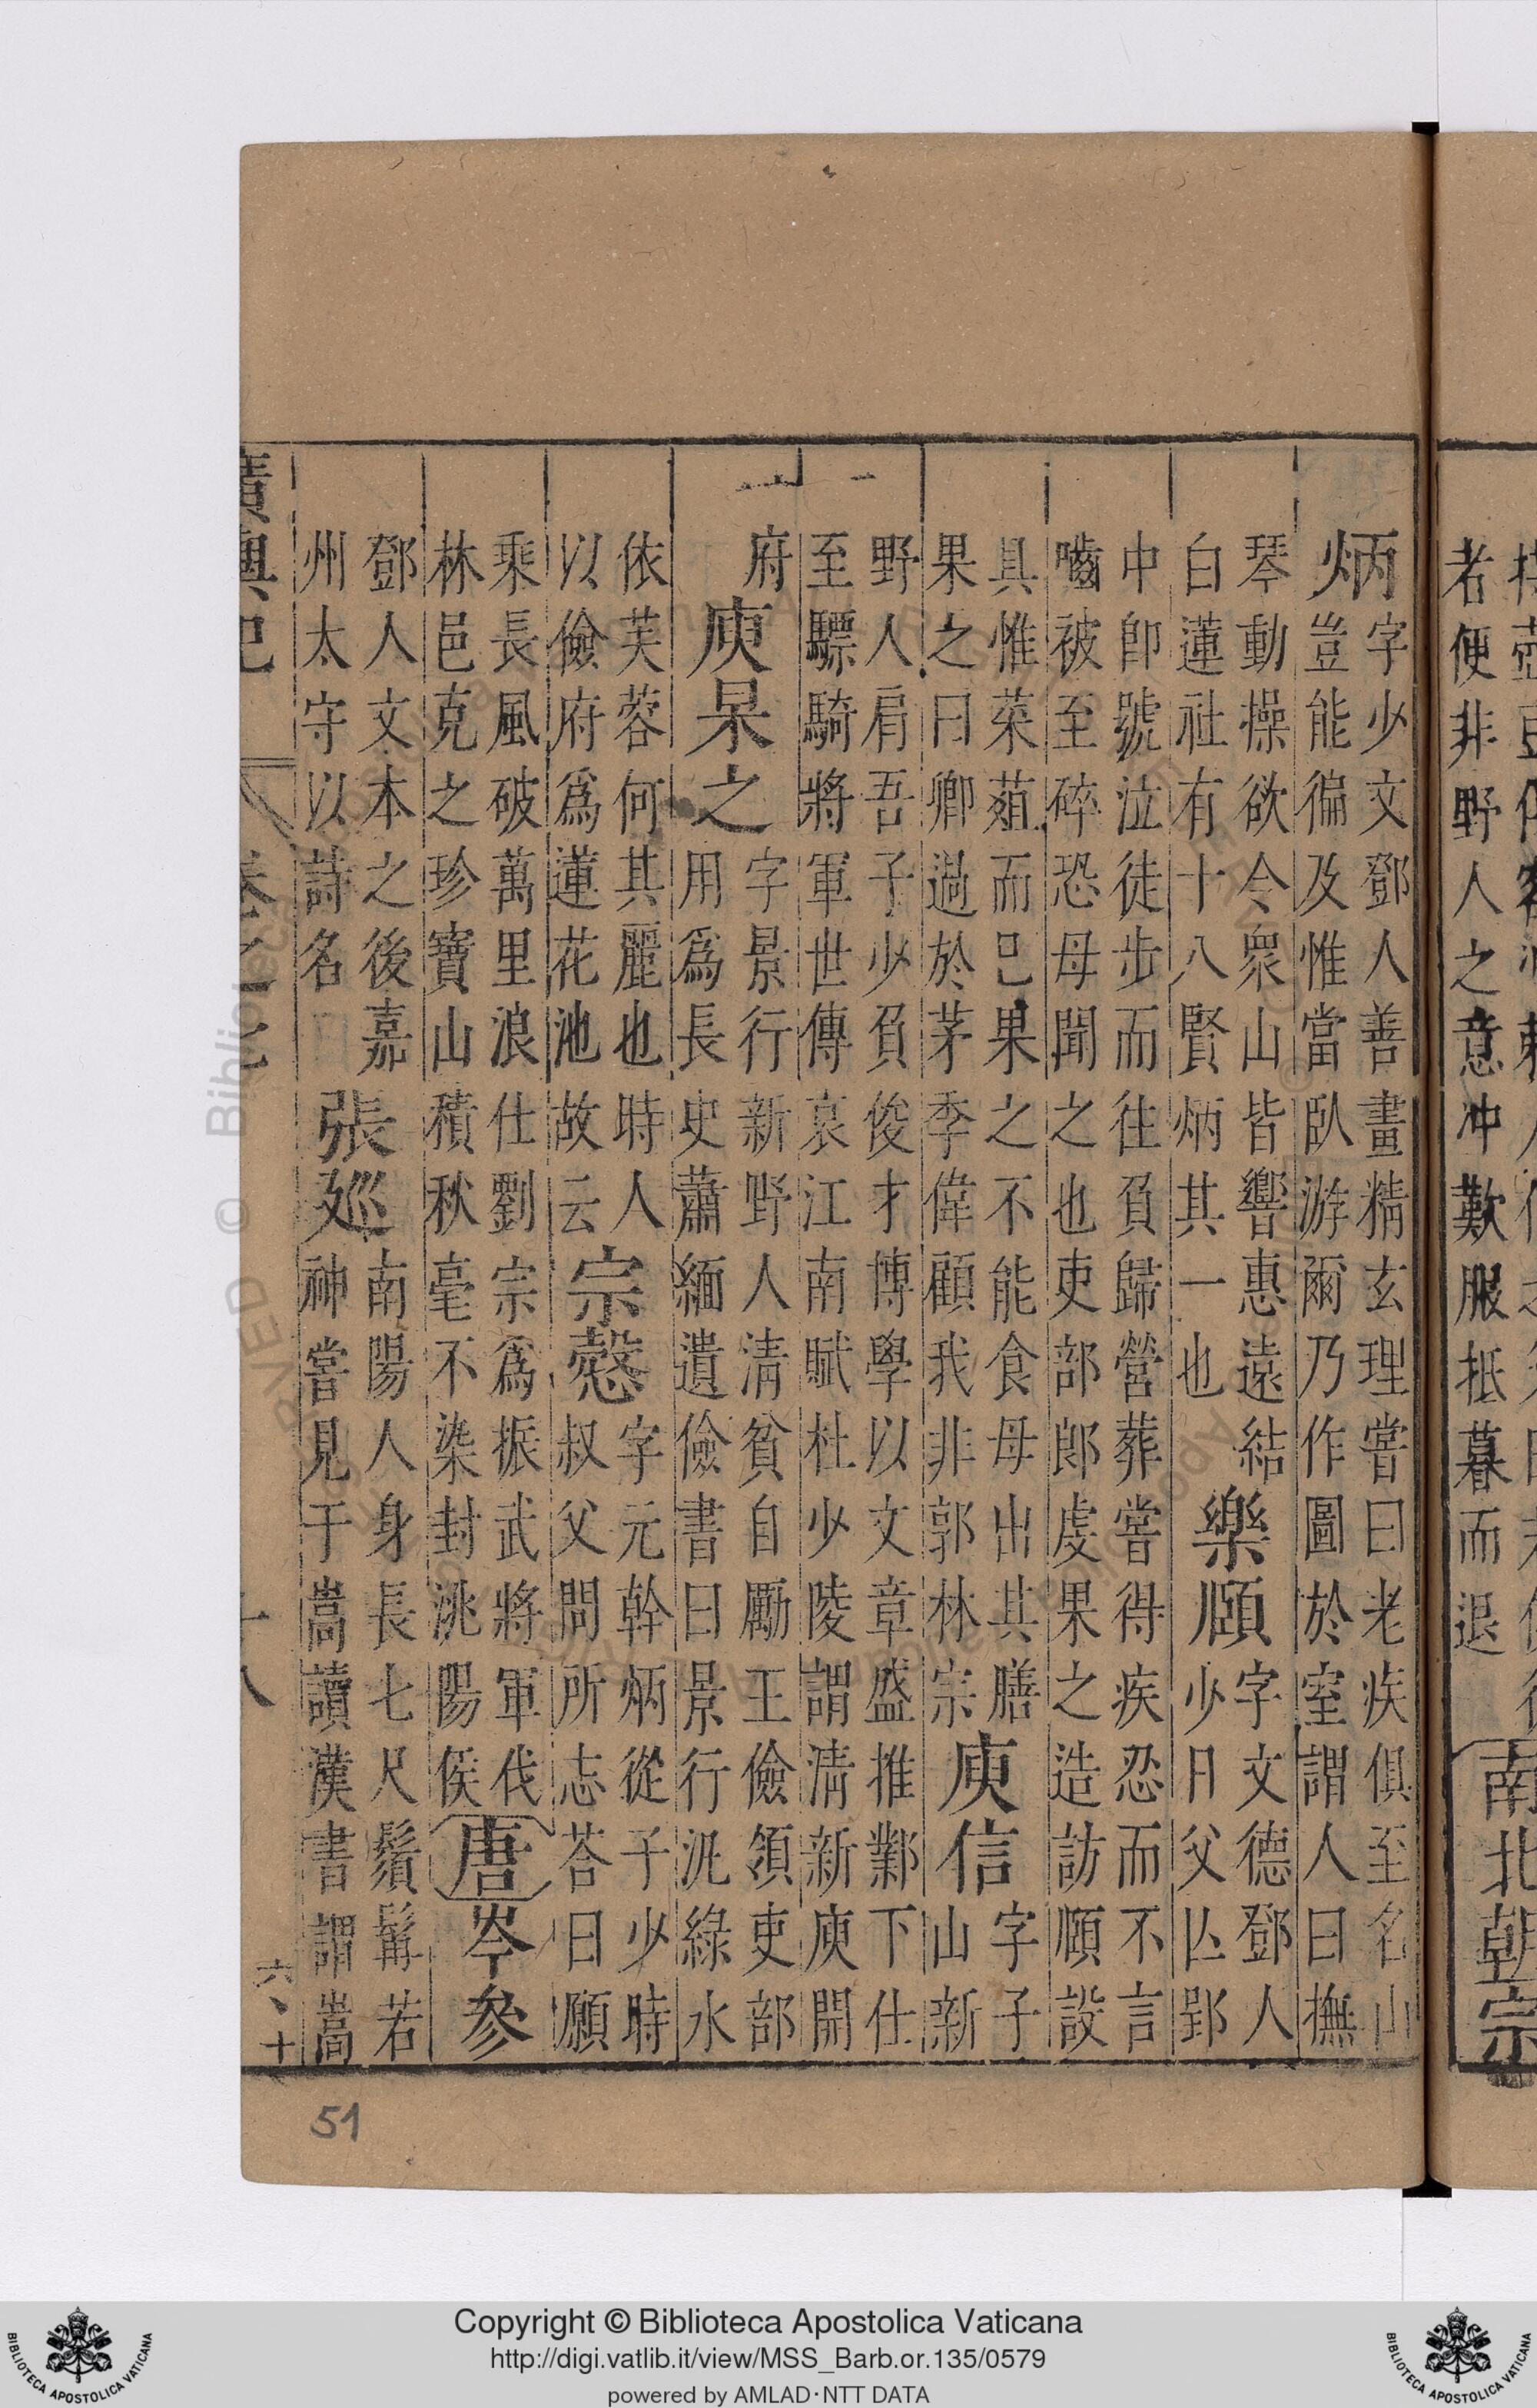 南北朝宗
者便非野人之意冲歎服抵暮而退
炳字少文鄧人善畫精玄理嘗曰老疾俱至名山
豈能徧及惟當臥游爾乃作圖於室謂人曰撫
琴動操欲令眾山皆響惠遠結
白蓮社有十八賢炳其一也
樂頤字文德鄧人
少日父亾郢
中卽號泣徒步而往負歸營葬嘗得疾忍而不言
嚙被至碎恐母聞之也吏部郎虔果之造訪頤設
具惟菜葅而巳果之不能食母出其膳
果之曰卿過於茅季偉顧我非郭林宗
庾信字子
山新
野人肩吾子少負俊才博學以文章盛推鄴下仕
至驃騎將軍世傳哀江南賦杜少陵謂淸新庾開
府
庾杲之字景行新野人淸貧自勵王儉領吏部
用爲長史蕭緬遺儉書曰景行汎綠水
依芙蓉何其麗也時人
以儉府爲蓮花池故云
宗愨字元幹炳從子少時
叔父問所志荅曰願
乘長風破萬里浪仕劉宗爲振武將軍伐
林邑克之珍寶山積秋毫不染封洮陽侯
唐岑參
鄧人文本之後嘉
州太守以詩名
張廵南陽人身長七尺鬚髯若
神嘗見于嵩讀漢書謂嵩
廣輿記
十八
六十
51
Copyright © Biblioteca Apostolica Vaticana
http://digi.vatlib.it/view/MSS_Barb.or.135/0579
powered by AMLAD·NTT DATA
BIBLIOTECA APOSTOLICA VATICANA
BIBLIOTECA APOSTOLICA VATICANA